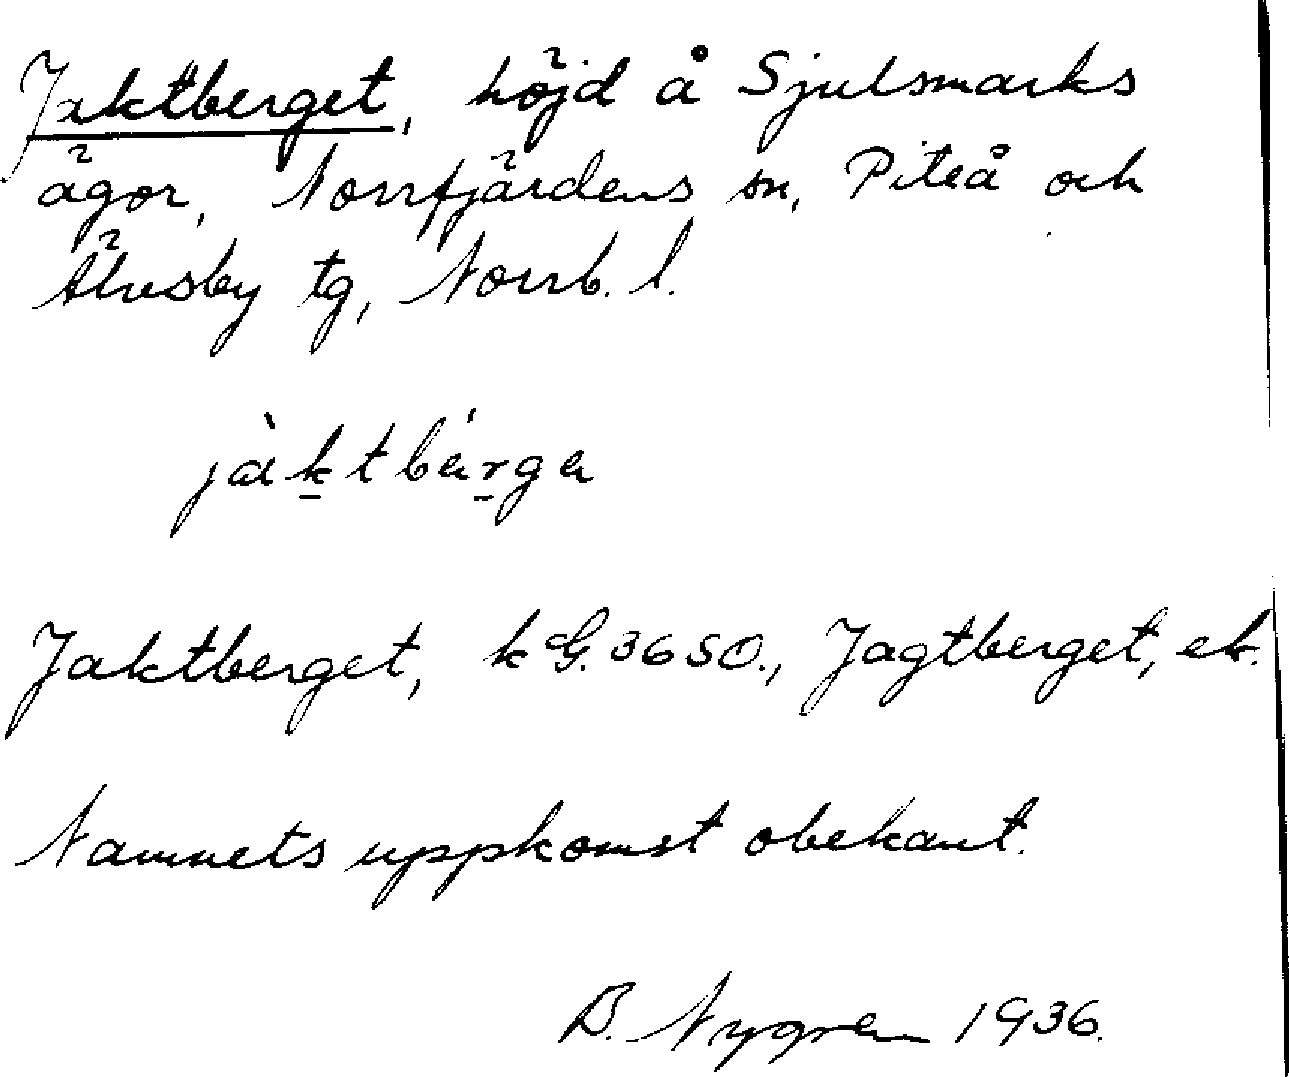 Jaktberget, höjd å Sjulsmarks
ägor, Norrfjärdens sn, Piteå och
Älvsby tg, Norrb. l.
jàktbárga
Jaktberget, k G. 3650., Jagtberget, ek.
Namnets uppkomst obekant.
B. Nygren 1936.